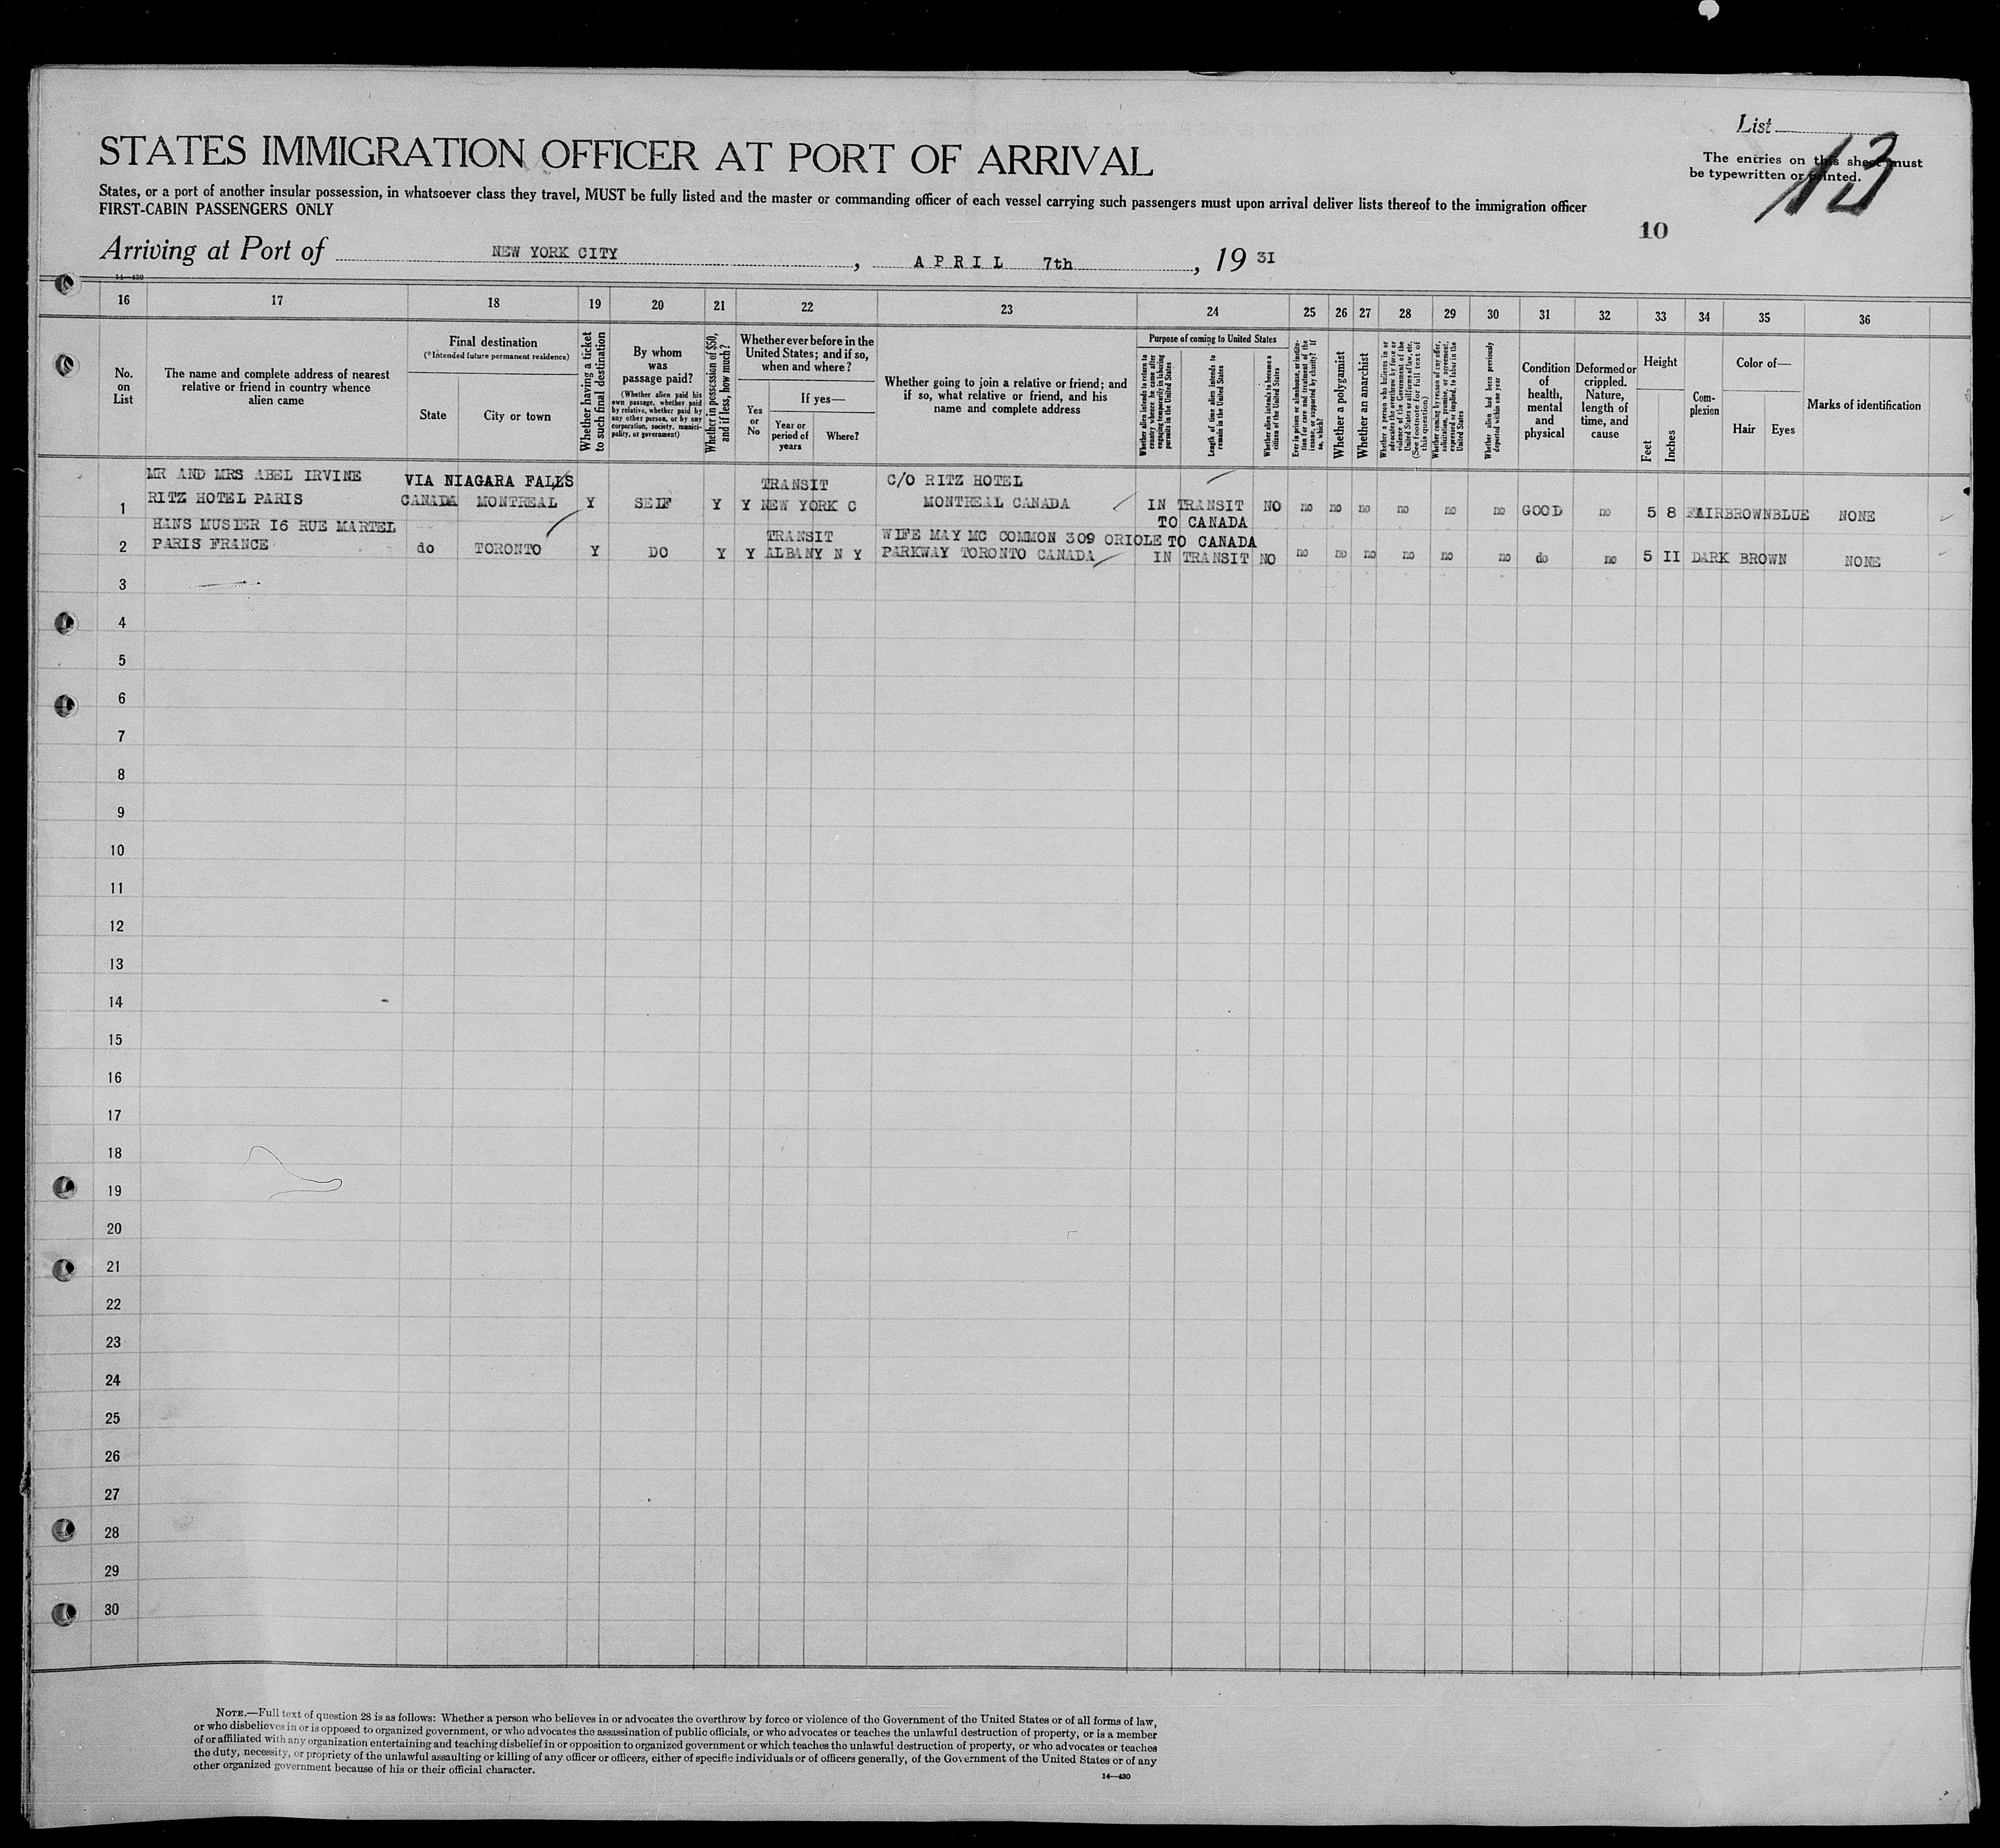 List
13
The entries on this sheet must
be typewritten or printed.
STATES IMMIGRATION OFFICER AT PORT OF ARRIVAL
States, or a port of another insular possession, in whatsoever class they travel, MUST be fully listed and the master or commanding officer of each vessel carrying such passengers must upon arrival deliver lists thereof to the immigration officer
FIRST-CABIN PASSENGERS ONLY
10
Arriving at Port of NEW YORK CITY, APRIL 7th, 19 31
14—430
16 17 18 19 20 21 22 23 24 25 26 27 28 29 30 31 32 33 34 35 36
No.
on
List
The name and complete address of nearest
relative or friend in country whence
alien came
Final destination
(*Intended future permanent residence)
State
City or town
Whether having a ticket
to such final destination
By whom
was
passage paid?
(Whether alien paid his
own passage, whether paid
by relative, whether paid by
any other person, or by any
corporation, society, munici-
pality, or government)
Whether in possession of $50,
and if less, how much?
Whether ever before in the
United States; and if so,
when and where?
Yes
or
No
If yes—
Year or
period of
years
Where?
Whether going to join a relative or friend; and
if so, what relative or friend, and his
name and complete address
Purpose of coming to United States
Whether alien intends to return to
country whence he came after
engaging temporarily in laboring
pursuits in the United States
Length of time alien intends to
remain in the United States
Whether alien intends to become a
citizen of the United States
Ever in prison or almshouse, or institu-
tion for care and treatment of the
insane, or supported by charity? If
so, which?
Whether a polygamist
Whether an anarchist
Whether a person who believes in or
advocates the overthrow by force or
violence of the Government of the
United States or all forms of law, etc.
(See footnote for full text of
this question)
Whether coming by reason of any offer,
solicitation, promise, or agreement,
expressed or implied, to labor in the
United States
Whether alien had been previously
deported within one year
Condition
of
health,
mental
and
physical
Deformed or
crippled.
Nature,
length of
time, and
cause
Height
Feet
Inches
Com-
plexion
Color of—
Hair
Eyes
Marks of identification
MR AND MRS ABEL IRVINE VIA NIAGARA FALLS TRANSIT C/O RITZ HOTEL
1 RITZ HOTEL PARIS CANADA MONTREAL Y SELF Y Y NEW YORK C MONTREAL CANADA IN TRANSIT NO no no no no no no GOOD no 5 8 FAIR BROWN BLUE NONE
TO CANADA
HANS MUSIER I6 RUE MARTEL TRANSIT WIFE MAY MC COMMON 309 ORIOLE TO CANADA
2 PARIS FRANCE do TORONTO Y DO Y Y ALBANY N Y PARKWAY TORONTO CANADA IN TRANSIT NO no no no no no no do no 5 II DARK BROWN NONE
3
4
5
6
7
8
9
10
11
12
13
14
15
16
17
18
19
20
21
22
23
24
25
26
27
28
29
30
NOTE.—Full text of question 28 is as follows: Whether a person who believes in or advocates the overthrow by force or violence of the Government of the United States or of all forms of law,
or who disbelieves in or is opposed to organized government, or who advocates the assassination of public officials, or who advocates or teaches the unlawful destruction of property, or is a member
of or affiliated with any organization entertaining and teaching disbelief in or opposition to organized government or which teaches the unlawful destruction of property, or who advocates or teaches
the duty, necessity, or propriety of the unlawful assaulting or killing of any officer or officers, either of specific individuals or of officers generally, of the Government of the United States or of any
other organized government because of his or their official character.
14—430